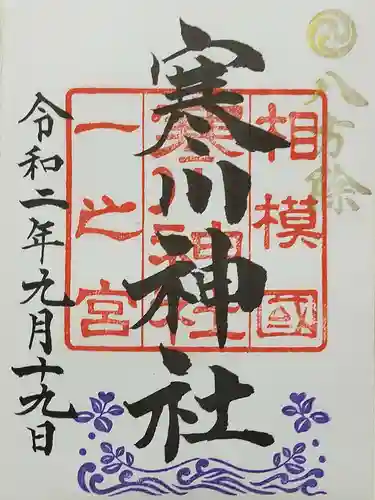 八方除
相模國
寒川神社
一之宮
寒川神社
令和二年九月十九日